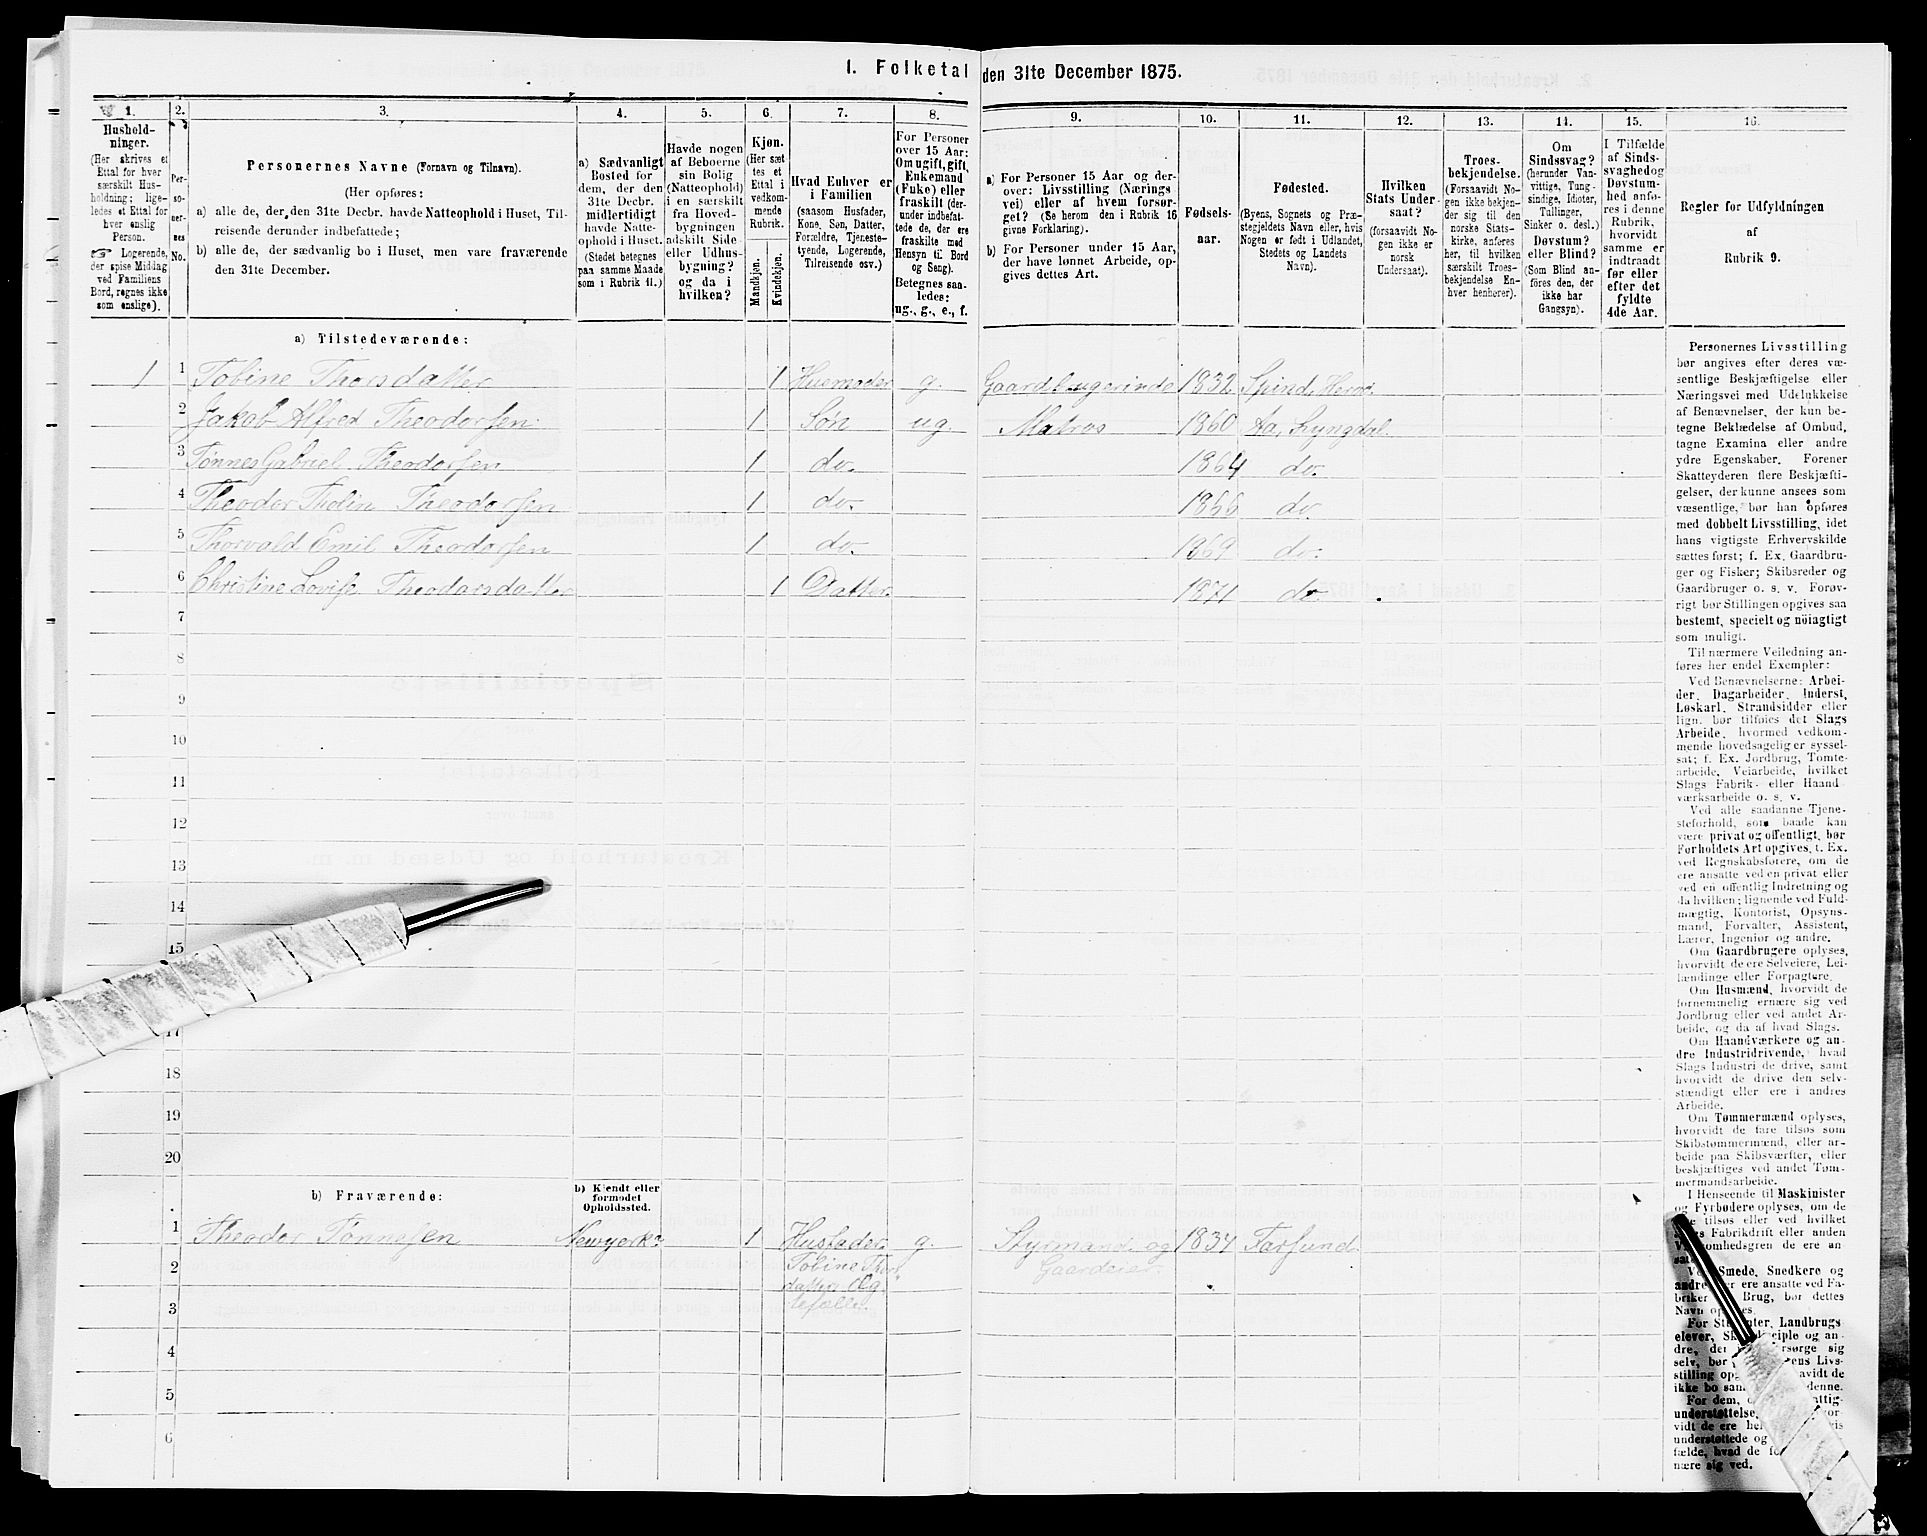 1. Folketal den 31te December 1875.
1. 2. 3. 4. 5. 6. 7. 8. 9. 10. 11. 12. 13. 14. 15. 16.
Hushold-
ninger.
(Her skrives et
Ettal for hver
særskilt Hus-
holdning; lige-
ledes et Ettal for
hver enslig
Person.
☞ Logerende,
der spise Middag
ved Familiens
Bord, regnes ikke
som enslige).
Per-
so-
ner-
nes
No.
Personernes Navne (Fornavn og Tilnavn).
(Her opføres:
a) alle de, der den 31te Decbr. havde Natteophold i Huset, Til-
reisende derunder indbefattede;
b) alle de, der sædvanlig bo i Huset, men vare fraværende
den 31te December.
a) Sædvanligt
Bosted for
dem, der den
31te Decbr.
midlertidigt
havde Natte-
ophold i Huset.
(Stedet betegnes
paa samme Maade
som i Rubrik 11.)
Havde nogen
af Beboerne
sin Bolig
(Natteophold)
i en særskilt
fra Hoved-
bygningen
adskilt Side-
eller Udhus-
bygning?
og da i
hvilken?
Kjøn.
(Her sæt
tes et
Ettal i
vedkom-
mende
Rubrik.
Mandkjøn.
Kvindekjøn.
Hvad Enhver er
i Familien
(saasom Husfader,
Kone, Søn, Datter,
Forældre, Tjeneste-
tyende, Logerende,
Tilreisende osv.)
For Personer
over 15 Aar:
Om ugift, gift,
Enkemand
(Fuke) eller
fraskilt (der-
under indbefat-
tede de, der ere
fraskilte med
Hensyn til Bord
og Seng).
Betegnes saa-
ledes:
ug., g., e., f.
a) For Personer 15 Aar og der-
over: Livsstilling (Nærings
vei) eller af hvem forsør-
get? (Se herom den i Rubrik 16
givne Forklaring).
b) For Personer under 15 Aar,
der have lønnet Arbeide, op-
gives dettes Art.
Fødsels-
aar.
Fødested.
(Byens, Sognets og Præ-
stegjeldets Navn eller, hvis
Nogen er født i Udlandet,
Stedets og Landets
Navn).
Hvilken
Stats Under-
saat?
(forsaavidt No-
gen ikke er
norsk
Undersaat).
Troes-
bekjendelse.
(Forsaavidt No-
gen ikke bekjen-
der sig til den
norske Stats-
kirke, anføres
her, til hvilken
særskilt Troes-
bekjendelse En-
hver henhører).
Om
Sindssvag?
(herunder Van-
vittige, Tung-
sindige, Idioter,
Tullinger,
Sinker o. desl.)
Døvstum?
eller Blind?
(Som Blind an-
føres den, der
ikke har
Gangsyn).
I Tilfælde
af Sinds-
svaghed og
Døvstum-
hed anfø-
res i denne
Rubrik,
hvorvidt
samme er
indtraadt
før eller
efter det
fyldte
4de Aar.
Regler for Udfyldningen
af
Rubrik 9.
a) Tilstedeværende:
1 1 Tobine Thorsdatter 1 Husmoder g. Gaardbrugerinde 1832 Spind, Herad
2 Jakob Alfred Theodorsen 1 Søn ug. Matros 1860 Aa, Lyngdal.
3 Tønnes Gabriel Theodorsen 1 do. 1864 do.
4 Theodor Tholin Theodorsen 1 do. 1866 do.
5 Thorvald Emil Theodorsen 1 do. 1869 do.
6 Christine Lovise Theodorsdatter 1 Datter 1871 do.
7
8
9
10
11
12
13
14
15
17
18
19
20
b) Fraværende:
b) Kjendt eller
formodet
Opholdssted.
1 Theodor Tønnesen Newyork 1 Husfader g. Styrmand og 1834 Farsund
2 Tobine Thors Gaardeier.
datters Æg
3 tefælle.
4
5
6
Personernes Livsstilling
bør angives efter deres væ-
sentlige Beskjæftigelse eller
Næringsvei med Udelukkelse
af Benævnelser, der kun be-
tegne Beklædelse af Ombud,
tagne Examina eller andre
ydre Egenskaber. Forener
Skatteyderen flere Beskjæfti-
gelser, der kunne ansees som
væsentlige, bør han opføres
med dobbelt Livsstilling, idet
hans vigtigste Erhvervskilde
sættes først; f. Ex. Gaardbru-
ger og Fisker; Skibsreder og
Gaardbruger o. s. v. Forøv-
rigt bør Stillingen opgives saa
bestemt, specielt og nöiagtigt
som muligt.
Til nærmere Veiledning an-
føres her endel Exempler:
Ved Benævnelserne: Arbei-
der, Dagarbeider, Inderst,
Løskarl, Strandsidder eller
lign. bør tilføies det Slags
Arbeide, hvormed vedkom-
mende hovedsagelig er syssel-
sat; f. Ex. Jordbrug, Tomte-
arbeide, Veiarbeide, hvilket
Slags Fabrik- eller Haand
værksarbeide o. s. v.
Ved alle saadanne Tjene-
steforhold, som baade kan
være privat og offentligt, bør
Forholdets Art opgives, t. Ex.
ved Regnskabsførere, om de
ere ansatte ved en privat eller
ved en offentlig Indretning og
da hvilken; lignende ved Fuld-
mægtig, Kontorist, Opsyns-
mand, Forvalter, Assistent,
Lærer, Ingeniør og andre.
Om Gaardbrugere oplyses,
hvorvidt de ere Selveiere, Lei-
lændinge eller Forpagtere.
Om Husmænd, hvorvidt de
fornemmelig ernære sig ved
Jordbrug eller ved andet Ar-
beide, og da af hvad Slags.
Om Haandværkere og an-
dre Industridrivende, hvad
Slags Industri de drive, samt
hvorvidt de drive den selv-
stændigt eller ere i andres
Arbeide.
Om Tømmermænd oplyses,
hvorvidt de fare tilsøs som
Skibstømmermænd, eller ar-
beide paa Skibsværfter, eller
beskjæftiges ved andet Tøm-
mermandsarbeide.
I Henseende til Maskinister
og Fyrbødere oplyses, om de
tilsøs eller ved hvilket
Fabrikdrift eller anden
de ere an-
Smede, Snedkere og
andre ere ansatte ved Fa-
Brug, bør dettes
Navn
For Landbrugs
elever, og an-
dre, sig
selv, bør Livs-
stilling
ikke bo denne.
For dem,
understøttelse,
vidt de ere
understøttede og
fælde, hvad de
nære sig ved.